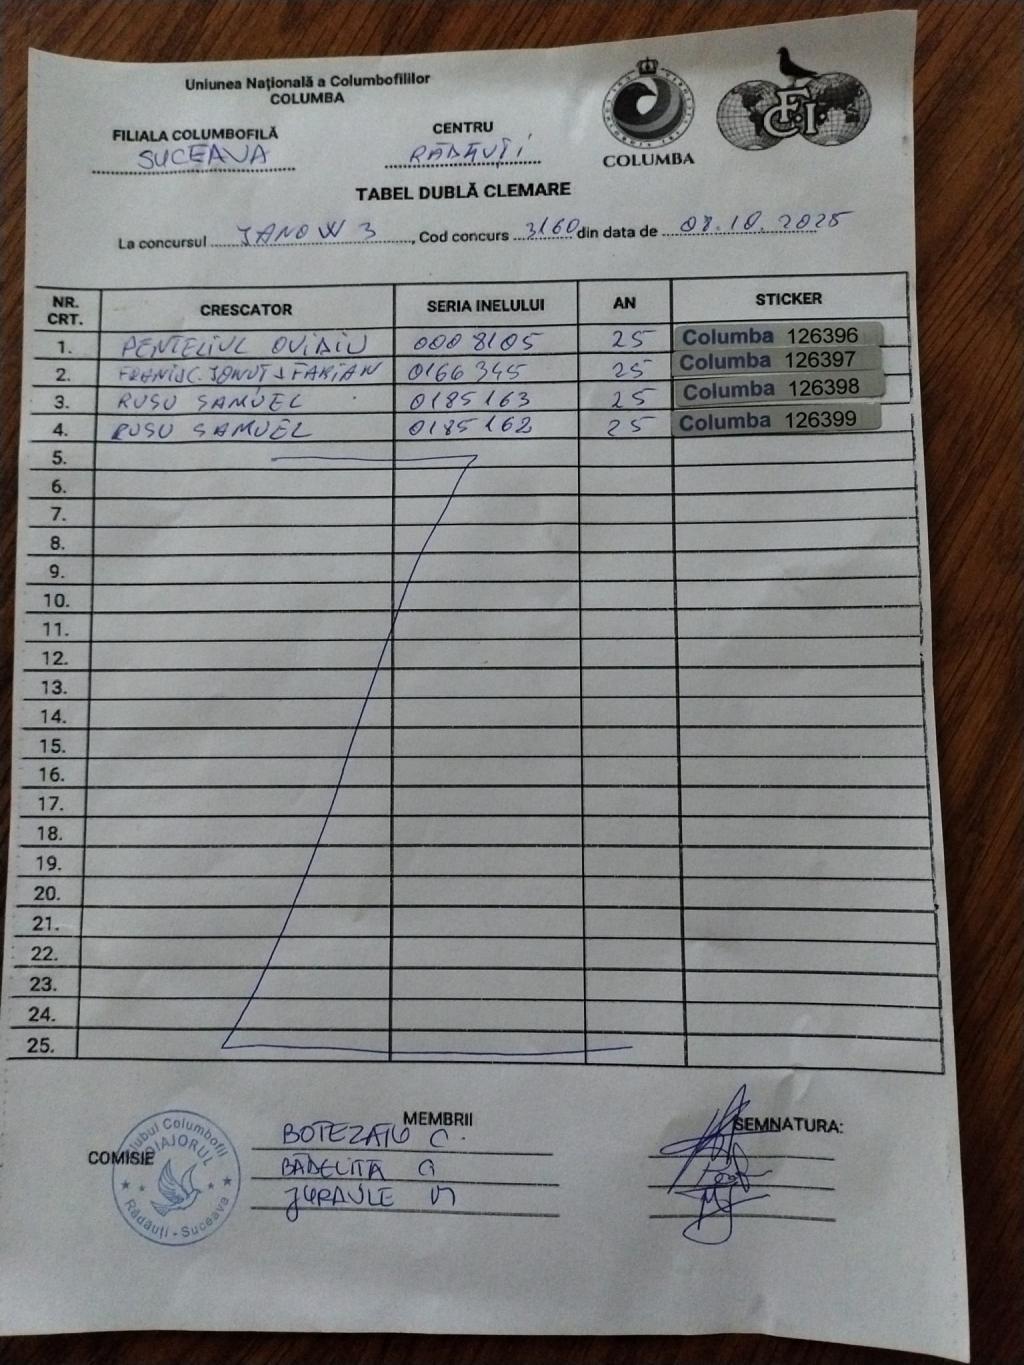 Uniunea Națională a Columbofililor
COLUMBA
FILIALA COLUMBOFILĂ
SUCEAVA
CENTRU
RĂDĂUȚI
COLUMBA
FCI
TABEL DUBLĂ CLEMARE
La concursul JANOW 3, Cod concurs 3160 din data de 08.10.2025
NR. CRT. CRESCATOR SERIA INELULUI AN STICKER
1. PENTELIUL OVIDIU 0008105 25 Columba 126396
2. IONUȚ FABIAN 0166345 25 Columba 126397
3. RUSU SAMUEL 0185163 25 Columba 126398
4. RUSU SAMUEL 0185162 25 Columba 126399
5.
6.
7.
8.
9.
10.
11.
12.
13.
14.
15.
16.
17.
18.
19.
20.
21.
22.
23.
24.
25.
COMISIE
MEMBRII
SEMNATURA:
BOTEZATU C.
BĂDELIȚĂ G
JURAVLE M
Clubul Columbofil
VIAJORUL
Rădăuți - Suceava